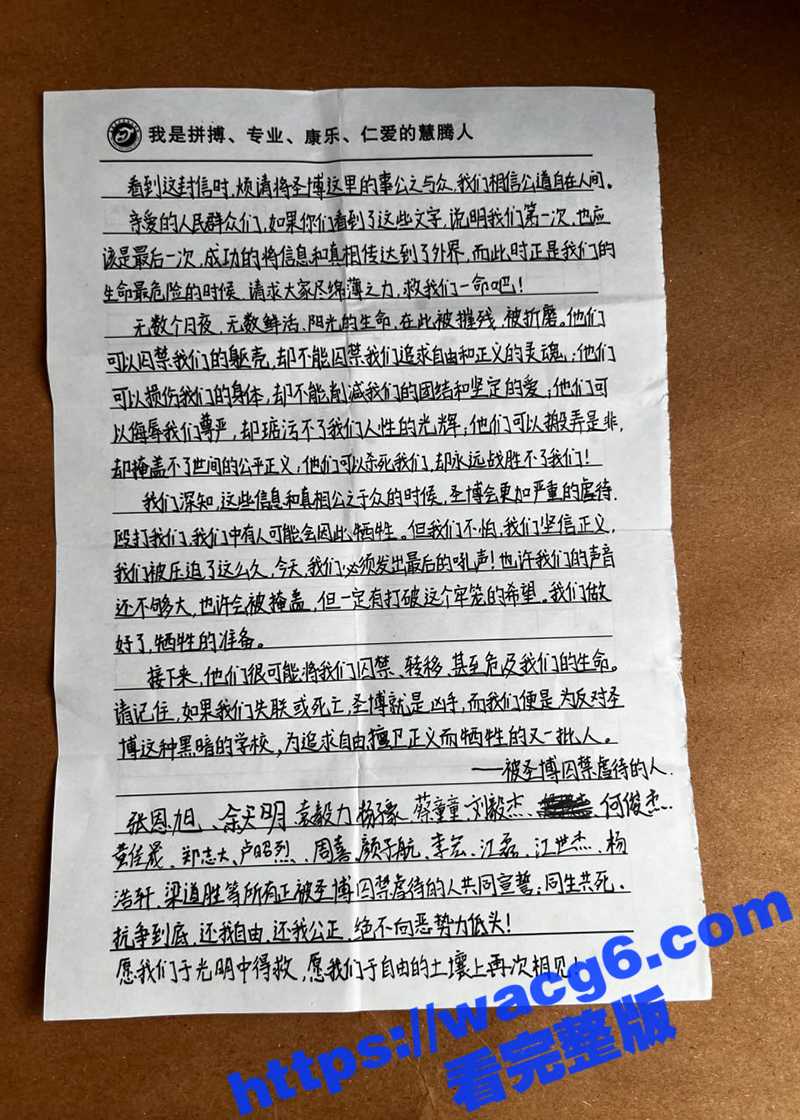 我是拼搏、专业、康乐、仁爱的慧腾人
看到这封信时,烦请将圣博这里的事公之与众,我们相信公道自在人间。
亲爱的人民群众们,如果你们看到了这些文字,说明我们第一次,也应
该是最后一次,成功的将信息和真相传达到了外界,而此时正是我们的
生命最危险的时候,请求大家尽绵薄之力,救我们一命吧!
无数个日夜,无数鲜活、阳光的生命,在此被摧残,被折磨。他们
可以囚禁我们的躯壳,却不能囚禁我们追求自由和正义的灵魂;他们
可以损伤我们的身体,却不能削减我们的团结和坚定的爱;他们可
以侮辱我们尊严,却玷污不了我们人性的光辉;他们可以搬弄是非,
却掩盖不了世间的公平正义;他们可以杀死我们,却永远战胜不了我们!
我们深知,这些信息和真相公之于众的时候,圣博会更加严重的虐待、
殴打我们,我们中有人可能会因此牺牲。但我们不怕,我们坚信正义,
我们被压迫了这么久,今天,我们必须发出最后的吼声!也许我们的声音
还不够大,也许会被掩盖,但一定有打破这个牢笼的希望。我们做
好了,牺牲的准备。
接下来,他们很可能将我们囚禁、转移、甚至危及我们的生命。
请记住,如果我们失联或死亡,圣博就是凶手,而我们便是为反对圣
博这种黑暗的学校,为追求自由,捍卫正义而牺牲的又一批人。
——被圣博囚禁虐待的人.
张恩旭、余天明、袁毅力、杨豫、蔡童童、刘毅杰、何俊杰、
黄佳晟、郑志大、卢昭烈、周喜、颜子航、李宏、江磊、江世杰、杨
浩轩、梁道胜等所有正被圣博囚禁虐待的人共同宣誓:同生共死.
抗争到底,还我自由,还我公正,绝不向恶势力低头!
愿我们于光明中得救,愿我们于自由的土壤上再次相见!
https://wacg6.com
看完整版